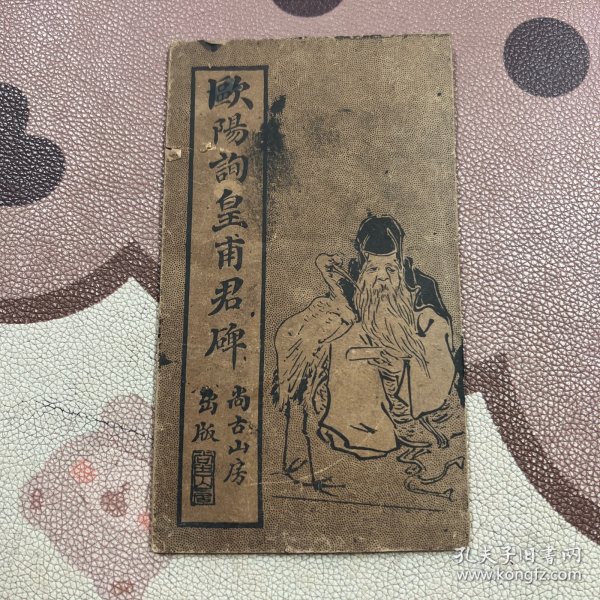 歐陽詢皇甫君碑
尚古山房
出版
孔夫子旧书网
www.kongfz.com